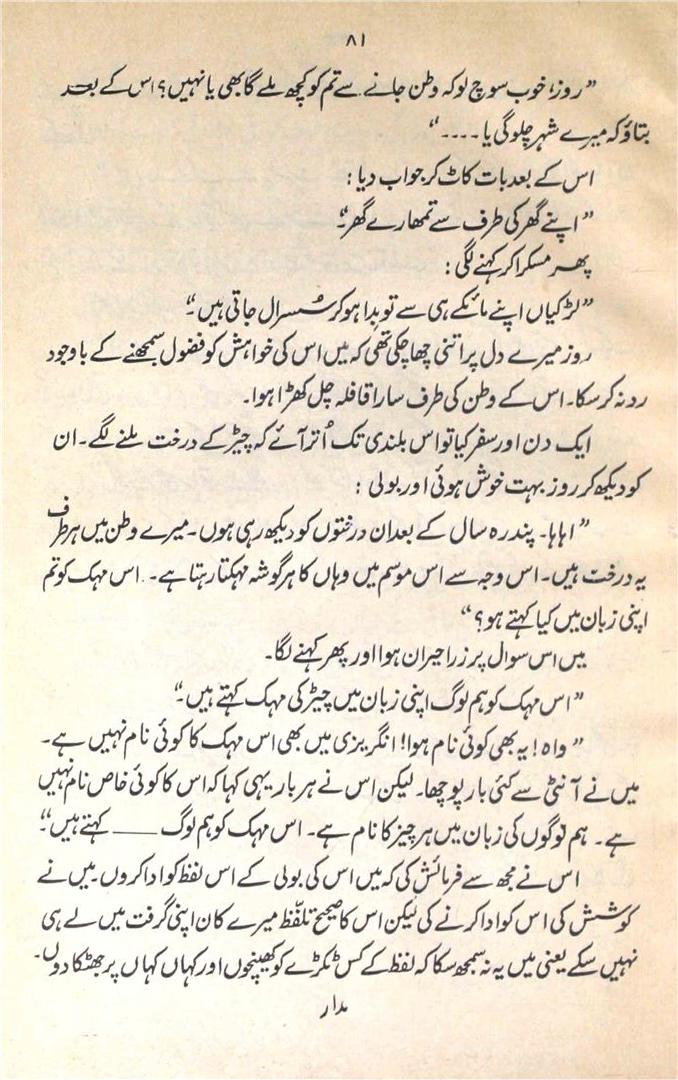 ۸۱
”روز، خوب سوچ لو کہ وطن جانے سے تم کو کچھ ملے گا بھی یا نہیں؟ اس کے بعد
بتاؤ کہ میرے شہر چلو گی یا ....“
اس کے بعد بات کاٹ کر جواب دیا :
”اپنے گھر کی طرف سے تمھارے گھر“۔
پھر مسکرا کر کہنے لگی :
”لڑکیاں اپنے مائکے ہی سے تو بدا ہو کر سُسرال جاتی ہیں“۔
روز میرے دل پر اتنی چھا چکی تھی کہ میں اس کی خواہش کو فضول سمجھنے کے باوجود
رد نہ کر سکا۔ اس کے وطن کی طرف سارا قافلہ چل کھڑا ہوا۔
ایک دن اور سفر کیا تو اس بلندی تک اُتر آئے کہ چیڑ کے درخت ملنے لگے۔ ان
کو دیکھ کر روز بہت خوش ہوئی اور بولی :
”اہاہا۔ پندرہ سال کے بعد ان درختوں کو دیکھ رہی ہوں۔ میرے وطن میں ہر طرف
یہ درخت ہیں۔ اس وجہ سے اس موسم میں وہاں کا ہر گوشہ مہکتا رہتا ہے۔ اس مہک کو تم
اپنی زبان میں کیا کہتے ہو؟“
میں اس سوال پر زرا حیران ہوا اور پھر کہنے لگا۔
”اس مہک کو ہم لوگ اپنی زبان میں چیڑ کی مہک کہتے ہیں“۔
”واہ! یہ بھی کوئی نام ہوا! انگریزی میں بھی اس مہک کا کوئی نام نہیں ہے۔
میں نے آنٹی سے کئی بار پوچھا۔ لیکن اس نے ہر بار یہی کہا کہ اس کا کوئی خاص نام نہیں
ہے۔ ہم لوگوں کی زبان میں ہر چیز کا نام ہے۔ اس مہک کو ہم لوگ ____ کہتے ہیں“۔
اس نے مجھ سے فرمائش کی کہ میں اس کی بولی کے اس لفظ کو ادا کروں۔ میں نے
کوشش کی اس کو ادا کرنے کی لیکن اس کا صحیح تلفّظ میرے کان اپنی گرفت میں لے ہی
نہیں سکے یعنی میں یہ نہ سمجھ سکا کہ لفظ کے کس ٹکڑے کو کھینچوں اور کہاں کہاں پر جھٹکا دوں۔
مدار